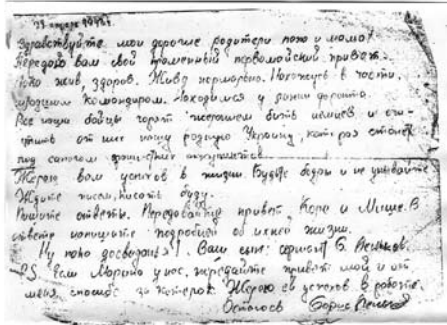 23 апреля 1942 г.
Здравствуйте мои дорогие родители папа и мама!
Передаю вам свой пламенный первомайский привет.
Пока жив, здоров. Живу нормально. Нахожусь в части,
младшим командиром. Находимся у линии фронта.
Все наши бойцы горят желанием бить немцев и очи-
стить от них нашу родную Украину, которая стонет
под сапогом оккупантов.
Желаю вам успехов в жизни. Будьте бодры и не унывайте
Ждите писем, писать буду.
Пишите ответы. Передавайте привет Коре и Мише. В
ответе напишите подробней об их жизни.
Ну пока досвидания! Ваш сын: сержант Б.
P.S. если Марина у вас, передайте привет мой и от
меня спасибо за Желаю ей успехов в работе.
Остаюсь Борис